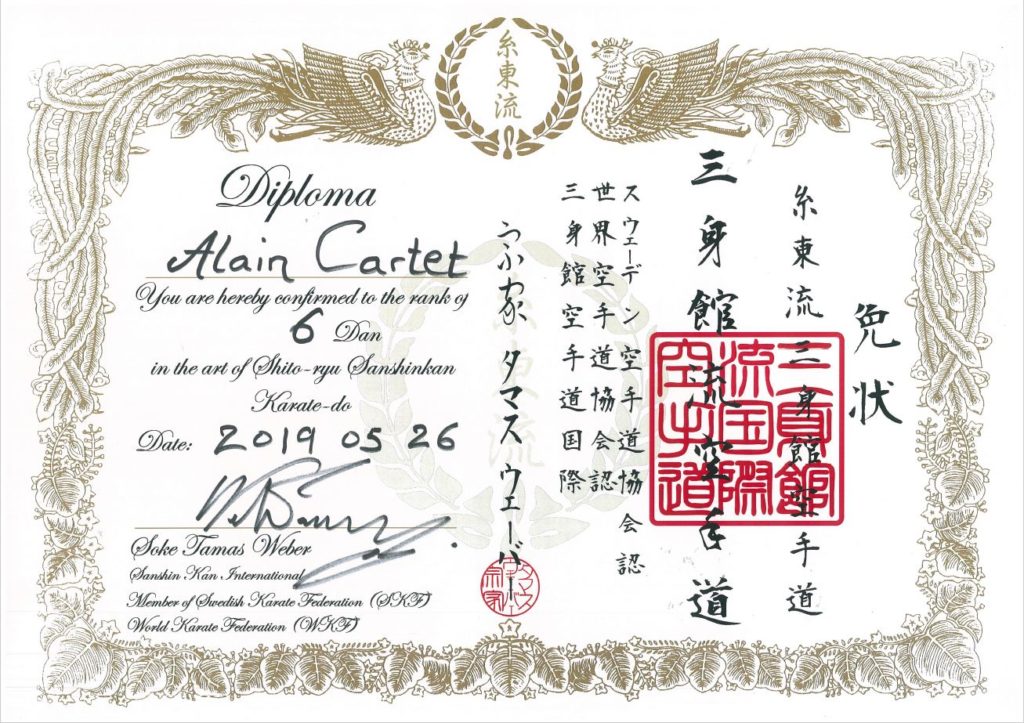 糸東流
Diploma
Alain Cartet
You are hereby confirmed to the rank of
6 Dan
in the art of Shito-ryu Sanshinkan
Karate-do
Date: 2019 05 26
Soke Tamas Weber
Sanshin Kan International
Member of Swedish Karate Federation (SKF)
World Karate Federation (WKF)
免状
糸東流三身館空手道
三身館流空手道
スウェーデン空手道協会認
世界空手道協会認
三身館空手道国際
宗家 タマス ウェーバー
三身館
流国際
空手道
糸東流